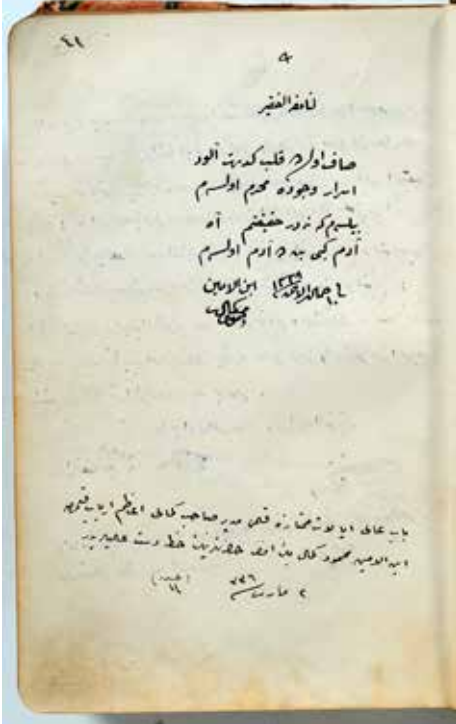 ٤١
لنامقه الفقير
صاف اولسه قلب كدورت آلود
اسرار وجوده محرم اولسه‌م
بيلسه‌م كه نه‌در حقيقتم آه
آدم كبى بن ده آدم اولسه‌م
ابن الامين
محمود كمال
باب عالى ايالات ممتازه قلمى مدير صاحب كمالى اعاظم ارباب قلمدن
ابن الامين محمود كمال بك افندى حضرتلرينك خط دست عاليلريدر
٢ مارت ٣٣٦